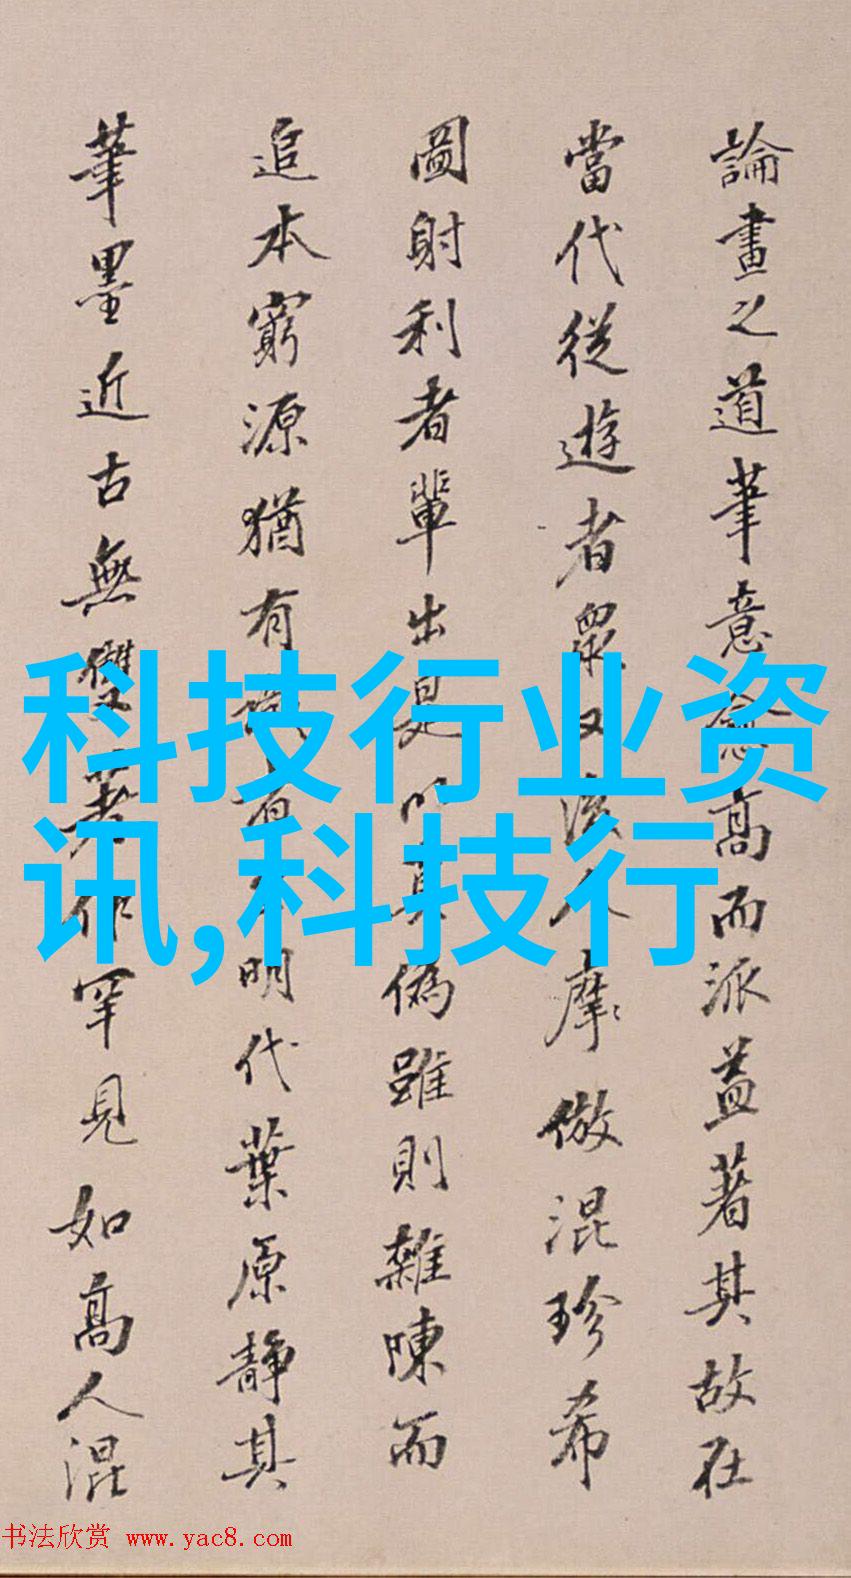 論畫之道筆意愈高而派益著其故在
當代從遊者眾又後人摩倣混珍希
圖射利者輩出是以真偽雖則雜陳而
追本窮源猶有明代葉原靜其
筆墨近古無雙著作罕見如高人混
科技行业资
讯,科技行
书法欣赏 www.yac8.com